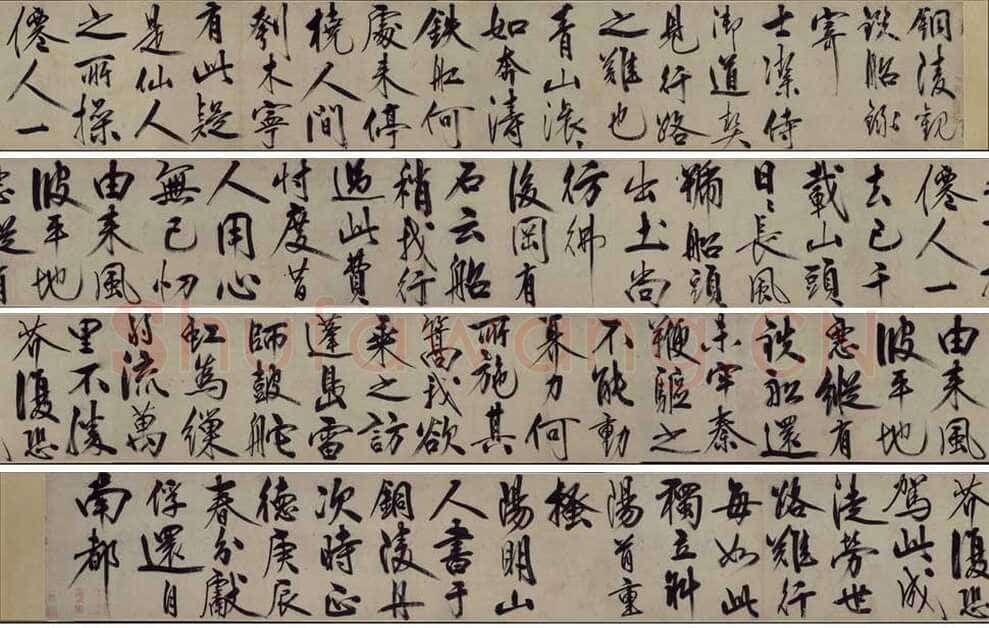 銅陵觀
鉄船錄
寄
士潔侍
御道契
見行路
之難也
青山滾々
如奔濤
鉄舡何
處来停
橈人間
刳木寧
有此疑
是仙人
之所操
僊人一
僊人一
去已千
載山頭
日々長風
號船頭
出土尚
彷彿
後岡有
石云船
稍我行
過此費
忖度昔
人用心
無已忉
由来風
波平地
惡縱有
由来風
波平地
惡縱有
鉄舡還
未牢秦
鞭驅之
不能動
奡力何
所施其
篙我欲
乗之訪
蓬島雷
師皷舵
虹為繅
弱流萬
里不勝
芥復恐
芥復恐
駕此成
徒勞世
路難行
每如此
獨立斜
陽首重
搔
陽明山
人書于
銅陵舟
次時正
德庚辰
春分獻
俘還自
南都
Shufawang.CN